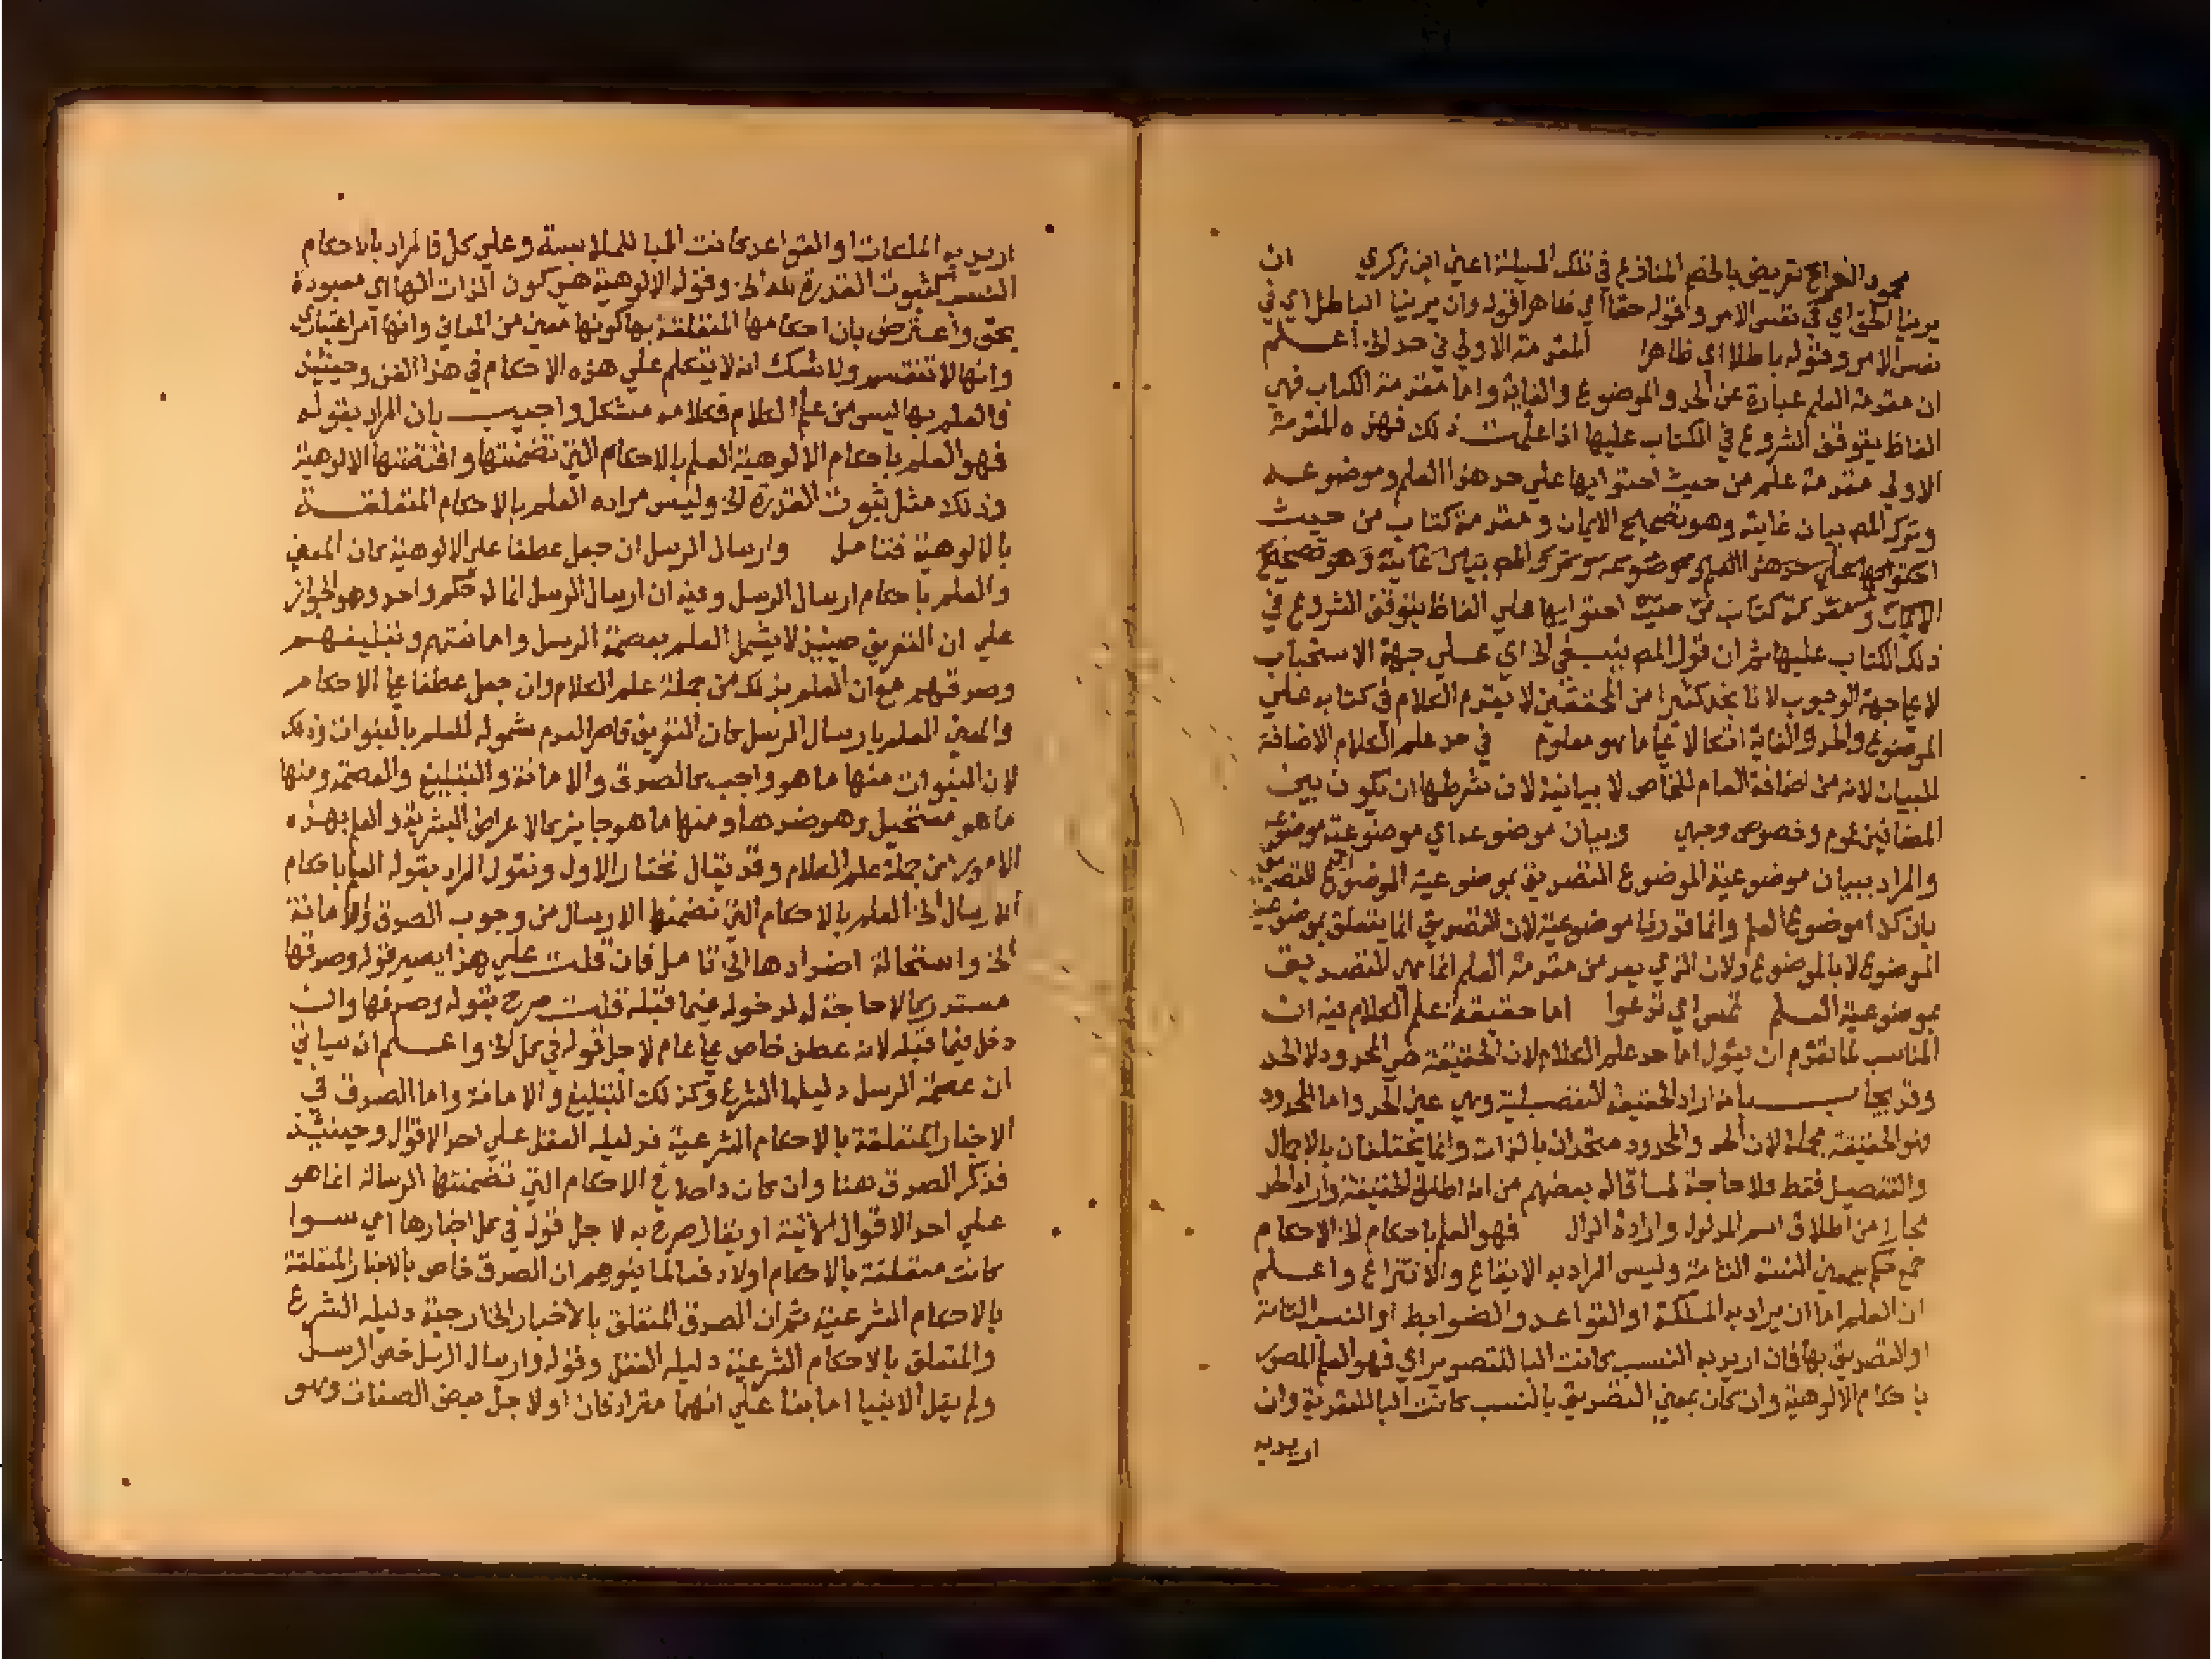 محمود الفراغ تعريض بالخصم المنازع في تلك المسيلة اعني ابن زكري ان
يرينا الحق اي في نفس الامر وقوله حقا اي ظاهرا قوله وان يرينا الباطل اي في
نفس الامر وقوله باطلا اي ظاهرا المقدمة الاولي في حد الخ اعلم
ان مقدمة العلم عبارة عن الحد والموضوع والغاية واما مقدمة الكتاب فهي
الفاظ يتوقف الشروع في الكتاب عليها اذا علمت ذلك فهذه المقدمة
الاولي مقدمة علم من حيث احتوايها علي حد هذا العلم وموضوعه
وترك المص بيان غايته وهو تصحيح الايمان ومقدمة كتاب من حيث
احتوايها علي حد هذا العلم وموضوعه وترك المص بيان غايته وهو تصحيح
الايمان ومقدمة كتاب من حيث احتوايها علي الفاظ يتوقف الشروع في
ذلك الكتاب عليها ثم ان قول المص ينبغي الخ اي علي جهة الاستحباب
لا علي جهة الوجوب لانا نجد كثيرا من المحققين لا يقدم الكلام في كتابه علي
الموضوع والحد والغاية اتكالا علي ما هو معلوم في حد علم الكلام الاضافة
للبيان لانه من اضافة العام للخاص لا بيانية لان شرطها ان يكون بين
المضافين عموم وخصوص وجهي وبيان موضوعه اي موضوعية موضوعه
والمراد ببيان موضوعية الموضوع التصديق بموضوعية الموضوع اي التصديق
بان كذا موضوع العلم وانما قدرنا موضوعية لان التصديق انما يتعلق بموضوعية
الموضوع لا بالموضوع ولان الذي يعد من مقدمة العلم انما هي التصديق
بموضوعية العلم تمس اي تدعوا اما حقيقة علم الكلام فيه ان
المناسب لما تقدم ان يقول اما حد علم الكلام لان الحقيقة هي المحدود لا الحد
وقد يجاب بانه اراد الحقيقة التفصيلية وهي عين الحد واما المحدود
فهو الحقيقة مجملة لان الحد والمحدود متحدان بالذات وانما يختلفان بالاجمال
والتفصيل فقط فلا حاجة لما قاله بعضهم من انه اطلق الحقيقة واراد الحد
مجازا من اطلاق اسم المدلول وارادة الدال فهو العلم باحكام الخ الاحكام
جمع حكم بمعني النسبة التامة وليس المراد به الايقاع والانتزاع واعلم
ان العلم اما ان يراد به الملكة او القواعد والضوابط او النسب التامة
او التصديق بها فان اريد به النسب كانت البا للتصوير اي فهو العلم المصور
باحكام الالوهية وان كان بمعني التصديق بالنسب كانت البا للتعدية وان
اريد به
اريد به الملكات او القواعد كانت البا للملابسة وعلي كل فالمراد بالاحكام
النسب كثبوت القدرة لله الخ وقوله الالوهية هي كون الذات الها اي معبودة
بحق واعترض بان احكامها المتعلقة بها كونها معني من المعاني وانها امر اعتباري
وانها لا تنقسم ولا شك انه لا يتكلم علي هذه الاحكام في هذا الفن وحينيذ
فالعلم بها ليس من علم الكلام فكلامه مشكل واجيب بان المراد بقوله
فهو العلم باحكام الالوهية العلم بالاحكام التي تضمنتها واقتضتها الالوهية
وذلك مثل ثبوت القدرة الخ وليس مراده العلم بالاحكام المتعلقة
بالالوهية فتامل وارسال الرسل ان جعل عطفا علي الالوهية كان المعني
والعلم باحكام ارسال الرسل وفيه ان ارسال الرسل انما له حكم واحد وهو الجواز
علي ان التعريف حينيذ لا يشمل العلم بعصمة الرسل وامانتهم وتبليغهم
وصدقهم مع ان العلم بذلك من جملة علم الكلام وان جعل عطفا علي الاحكام
والمعني العلم بارسال الرسل كان التعريف قاصر العدم شموله للعلم بالنبوات وذلك
لان النبوات منها ما هو واجب كالصدق والامانة والتبليغ والعصمة ومنها
ما هو مستحيل وهو ضدها ومنها ما هو جايز كالاعراض البشرية والعلم بهذه
الامور من جملة علم الكلام وقد يقال نختار الاول ونقول المراد بقوله العلم باحكام
الارسال الخ العلم بالاحكام التي تضمنها الارسال من وجوب الصدق والامانة
الخ واستحالة اضدادها الخ تامل فان قلت علي هذا يصير قوله وصدقها
مستدركا لا حاجة له لدخوله فيما قبله قلت صرح بقوله وصدقها وان
دخل فيما قبله لانه عطف خاص علي عام لاجل قوله في كل الخ واعلم ان سياتي
ان عصمة الرسل دليلها الشرع وكذلك التبليغ والامانة واما الصدق في
الاخبار المتعلقة بالاحكام الشرعية فدليله العقل علي احد الاقوال وحينيذ
فذكر الصدق هنا وان كان داخلا في الاحكام التي تضمنتها الرسالة انما هو
علي احد الاقوال الاتية او يقال صرح به لاجل قوله في كل اخبارها اي سوا
كانت متعلقة بالاحكام اولا دفعا لما يتوهم ان الصدق خاص بالاخبار المتعلقة
بالاحكام الشرعية ثم ان الصدق المتعلق بالاخبار الخارجية دليله الشرع
والمتعلق بالاحكام الشرعية دليله العقل وقوله وارسال الرسل خص الرسل
ولم يقل الانبيا اما بنا علي انهما مترادفان او لاجل بعض الصفات وهو